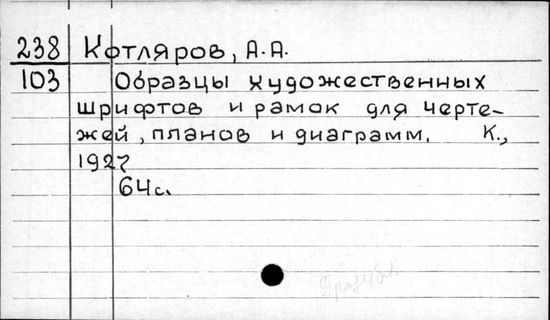 238 Котляров, А.А.
103 Образцы художественных
шрифтов и рамок для черте-
жей, планов и диаграмм. К.,
1927
64с.